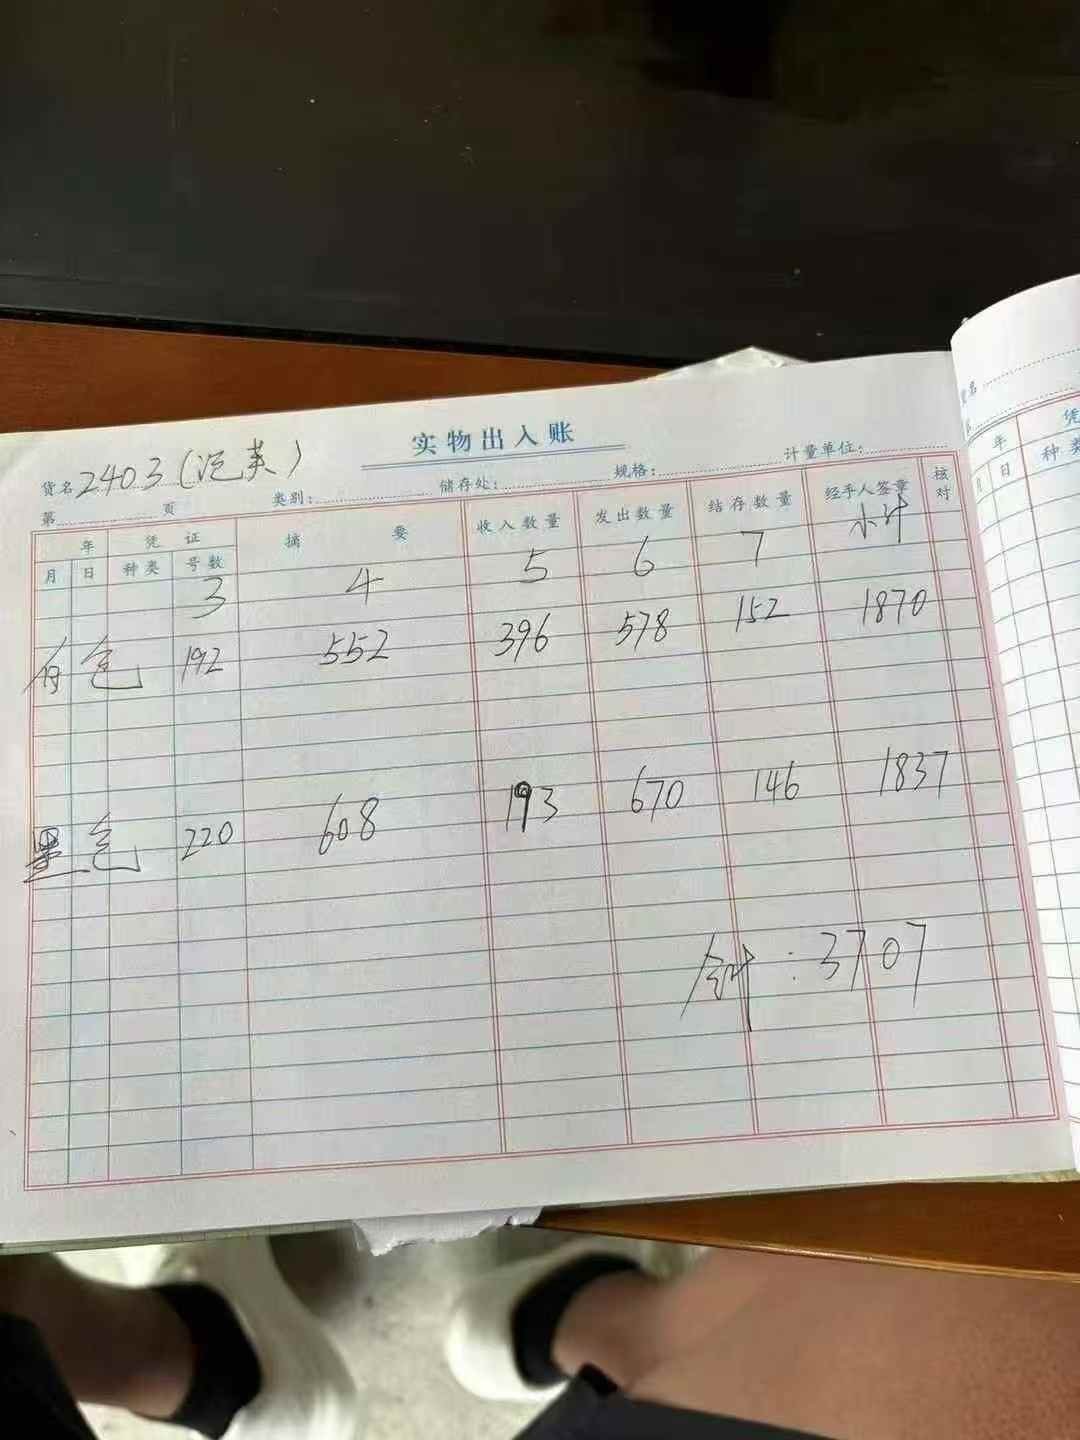 实物出入账
货名 2403(范英)
类别: 储存处: 规格: 计量单位:
第 页
年 凭证 摘要 收入数量 发出数量 结存数量 经手人签章 核对
月 日 种类 号数
3 4 5 6 7 小计
白色 192 552 396 578 152 1870
黑色 220 608 193 670 146 1837
合计:3707
货名
年 凭
月 日 种类